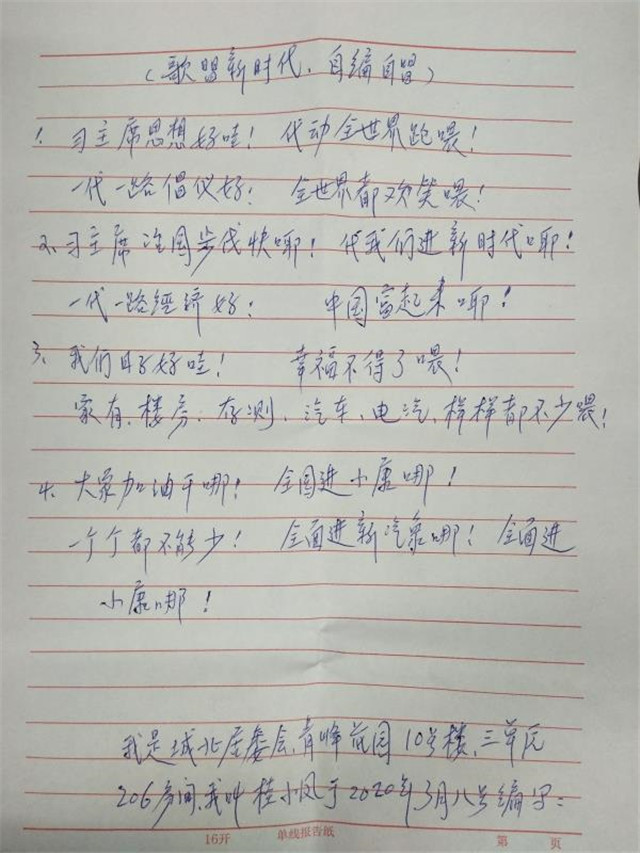 （歌盟新时代，自编自唱）
1. 习主席思想好哇！ 代动全世界跑喂！
一代一路倡仪好！ 全世界都欢笑喂！
2、习主席治国步伐快哪！ 代我们进新时代哪！
一代一路經济好！ 中国富起来哪！
3、我们日子好哇！ 幸福不得了喂！
家有、楼房、存测、汽车、电汽、样样都不少喂！
4、大家加油干哪！ 全国进小康哪！
一个个都不能少！ 全面进新汽象哪！ 全面进
小康哪！
我是城北居委会、青峰花园10号楼、三单元
206房间、我叫桂小凤于2020年3月八号编写：
16开 单线报告纸 第 页